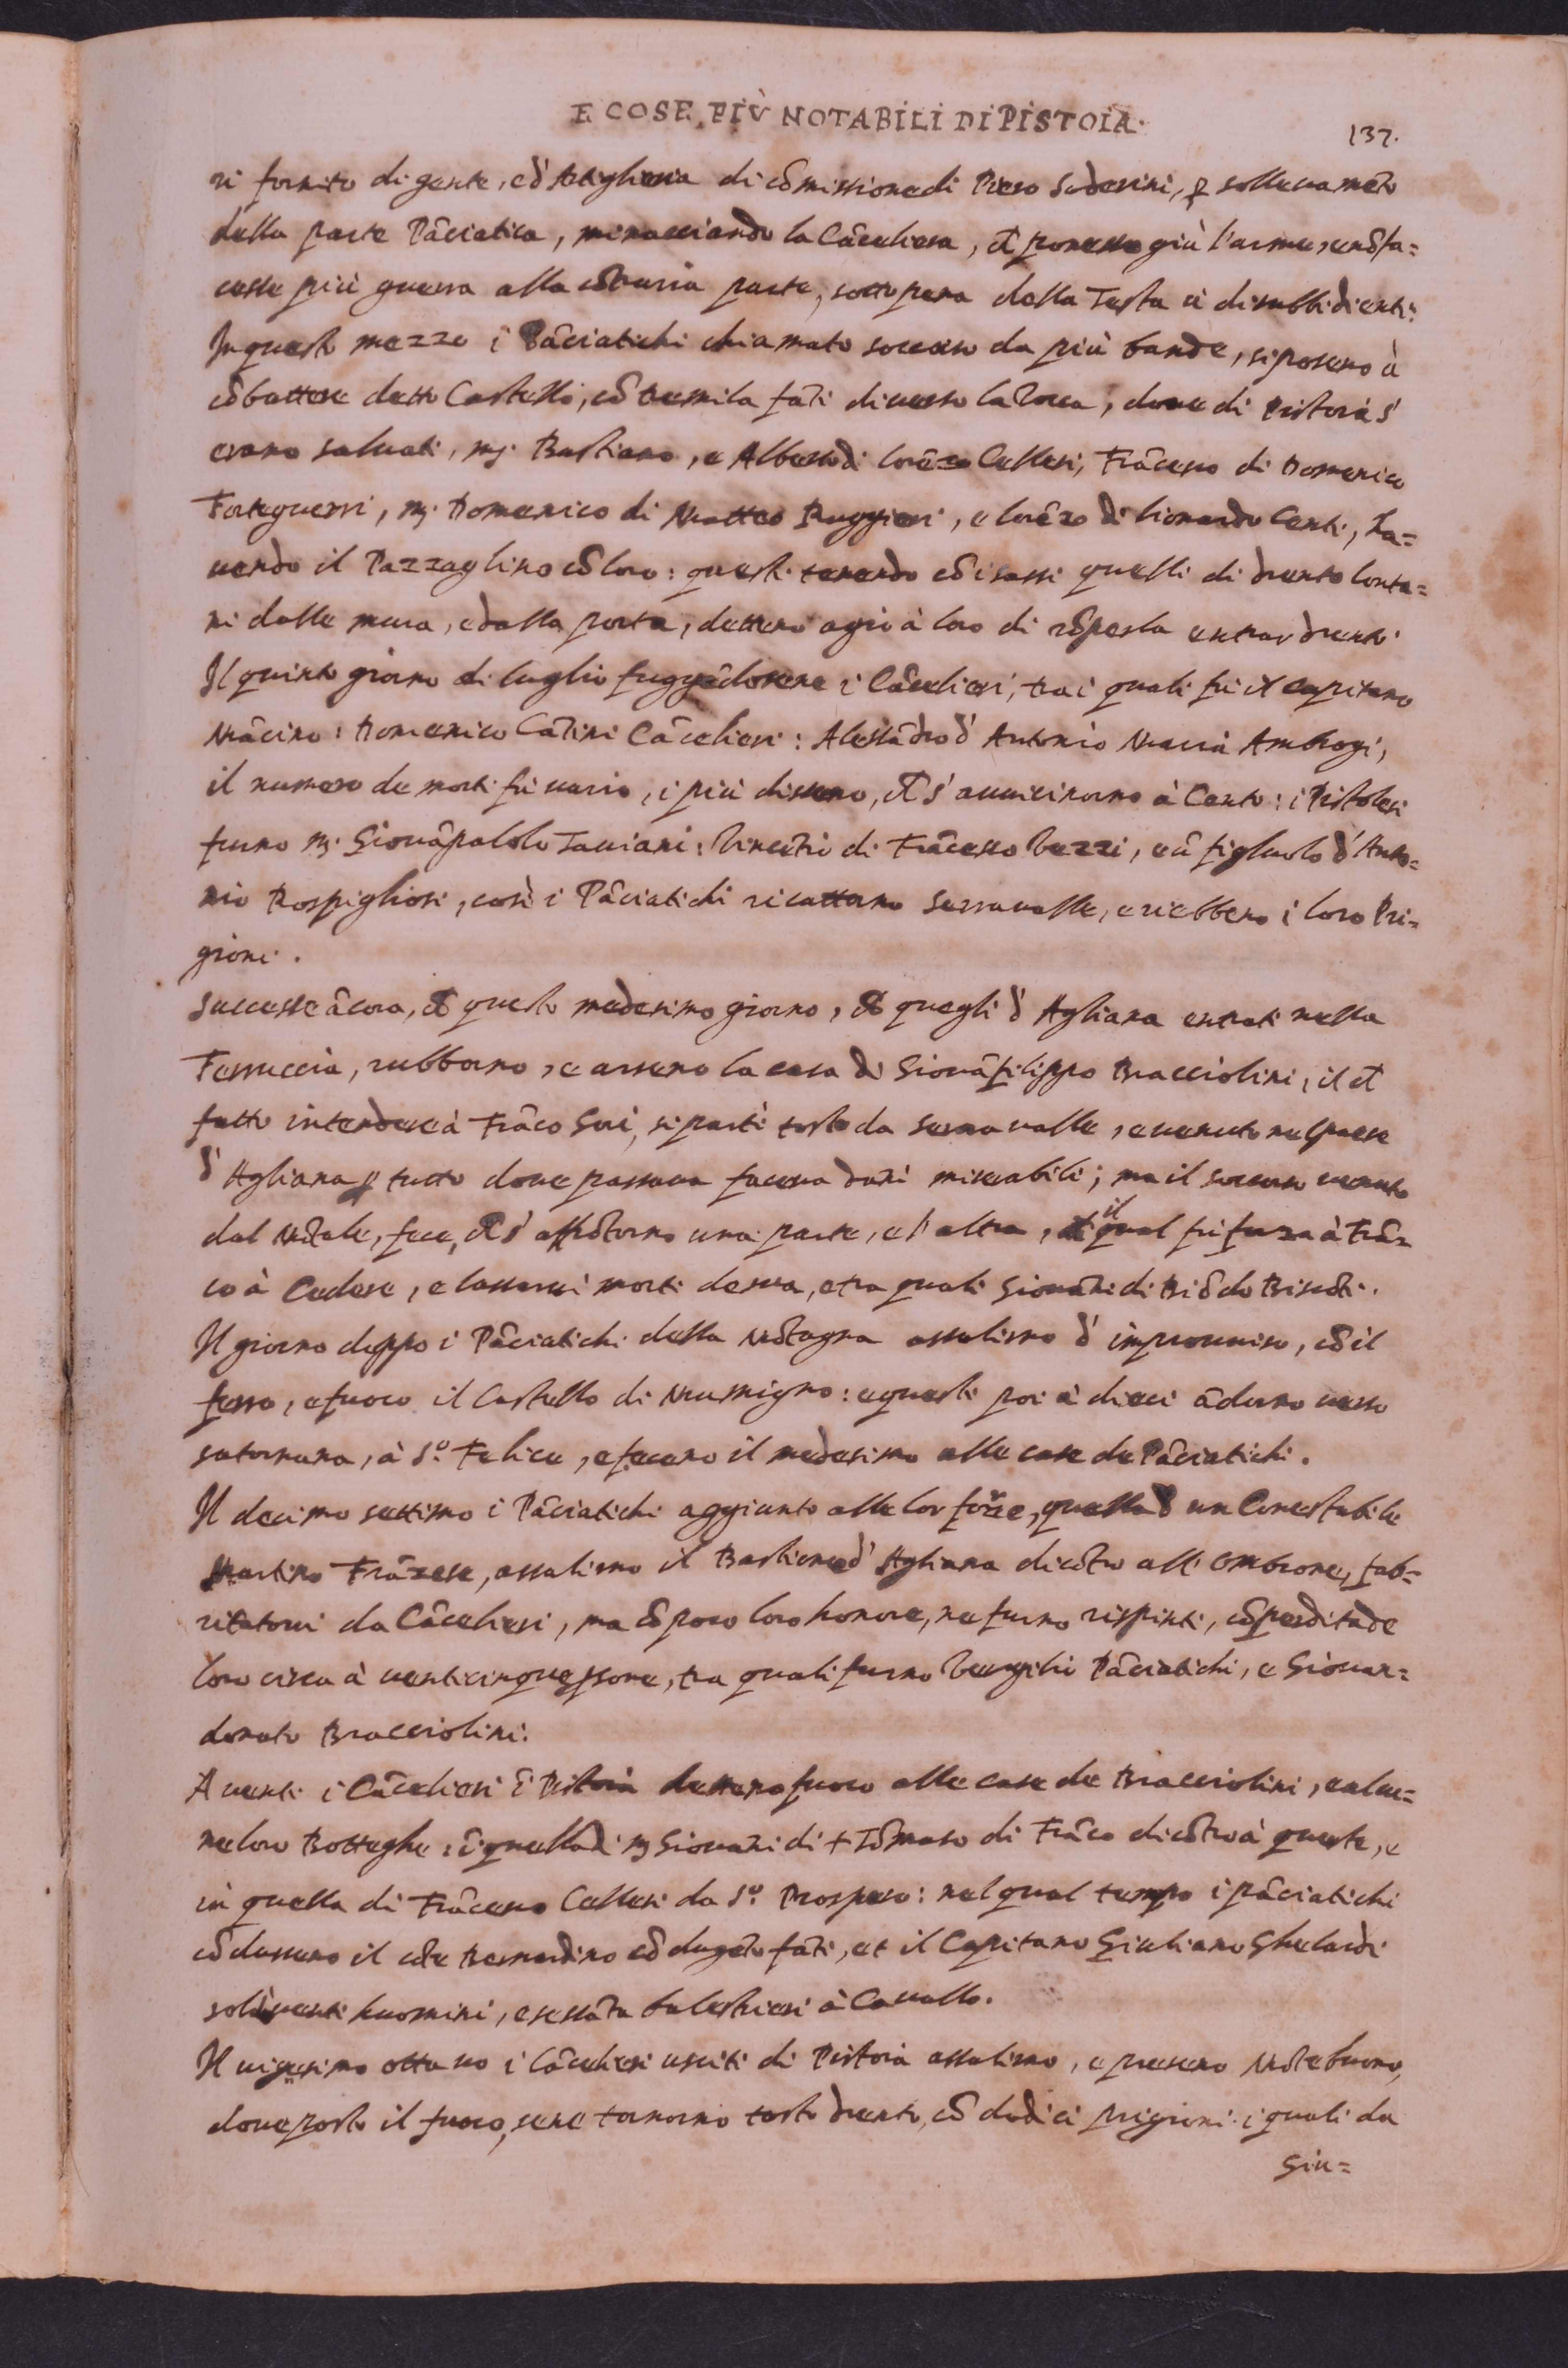 E COSE PIÙ NOTABILI DI PISTOIA.
137.
ri fornito di gente, e d'Artiglieria di cômissione di Piero Soderini, ꝑ sollevamêto
della parte Pâciatica, minacciando la Câceliera, ch̃ ponesse giù l'arme, e nô fa=
cesse più guerra alla côtraria parte, sotto pena della Testa à disubbidienti:
In questo mezzo i Pâciatichi chiamato soccorso da più bande, si posero à
côbattere detto Castello, cô tremila fâti di verso la Rocca, dove di Pistoia s'
erano salvati, mͬ. Bastiano, e Alberto di Lorêzo Cellesi, Frâcesco di Domenico
Forteguerri, mͬ. Domenico di Matteo Ruggieri, e Lorêzo di Lionardo Centi, ha=
uendo il Pazzaglino cô loro: questi tenendo cô i sassi quelli di drento lonta=
ni dalle mura, e dalla porta, dettero agio à loro di entrar drento
Il quinto giorno di luglio fuggêdosene i Câcelieri, tra i quali fù il capitano
Mâcino: Domenico Câtini Câcelieri: Alessâdro d'Antonio Maria Ambrogi,
il numero de morti fù vario, i più dissero, ch̃ s'avvicinorno à Cento: i Pistolesi
furno mͬ. Giovâpaolo Taviani: Vincêtio di Frâcesco Vezzi, e û figliuolo d'Anto=
nio Rospigliosi, così i Pâciatichi ricattorno Serravalle, e riebbero i loro Pri=
gioni.
Successe âcora, ch̃ questo medesimo giorno, ch̃ quegli d'Agliana entrati nella
Ferruccia, rubborno, e arsero la casa di Giovâfilippo Bracciolini, il ch̃
fatto intendere à Frâco Gori, si partì tosto da Serravalle, e venuto nel paese
d'Agliana ꝑ tutto dove passava faceva dani miserabili; ma il soccorso venuto
dal Môtale, fece, ch̃ s'affrôtorno una parte, e l'altra, il qual fù forza à Frâ=
co à Cedere, e lassarvi morti de sua, e tra quali Giovâni di Biôdo Biscôti.
Il giorno doppo i Pâciatichi della Môtagna assalirno d'improvviso, cô il
ferro, e fuoco il Castello di Mumigno: e questi poi à dieci âdorno verso
Satornana, à Sº. Felice, e fecero il medesimo alle case de Pâciatichi.
Il decimo settimo i Pâciatichi aggiunto alle lor forze, quella d'un Conestabile
Martino Frâzese, assalirno il Bastione d'Agliana dicôtro all'Ombrone, fab=
ricatovi da Câcelieri, ma cô poco loro honore, ne furno rispinti, cô perdita de
loro circa à venticinque ꝑsone, tra quali furno Vergilio Pâciatichi, e Giovan=
donato Bracciolini.
A venti i Câcelieri î Pistoia dettero fuoco alle case de Bracciolini, e alcu=
ne loro Botteghe: î quella di mͬ Giovâni di + Tômaso di Frâco dicôtro à queste, e
in quella di Frâcesco Cellesi da Sº. Prospero: nel qual tempo i pâciatichi
côdussero il côte Bernardino cô dugêto fâti, et il Capitano Giuliano Gherardi
venti huomini, e sessâta balestrieri à Cavallo.
Il vigesimo ottavo i Câcelieri usciti di Pistoia assalirno, e presero Môtebuono,
dove posto il fuoco, sene tornorno tosto drento, cô dodici prigioni i quali da
Giu=